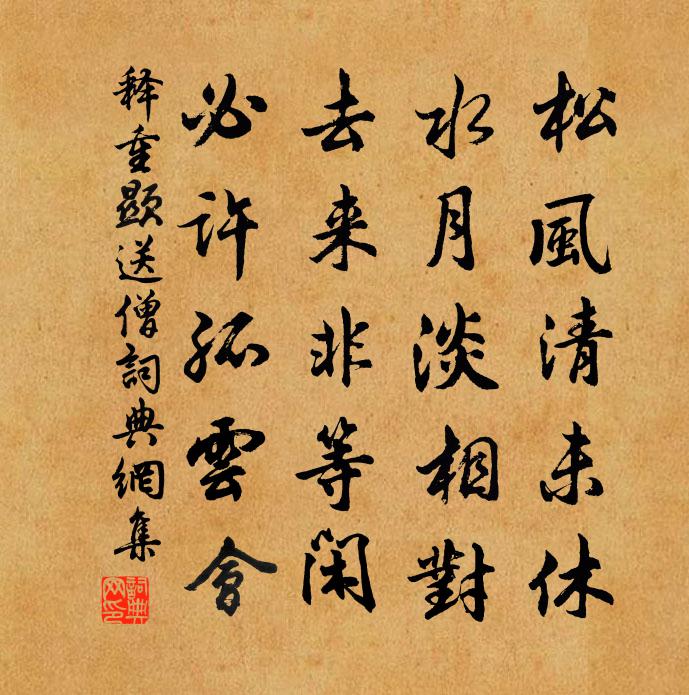 松風清未休
水月淡相對
去来非等閑
必許孤雲會
释重顯送僧詞典網集
詞典
网印